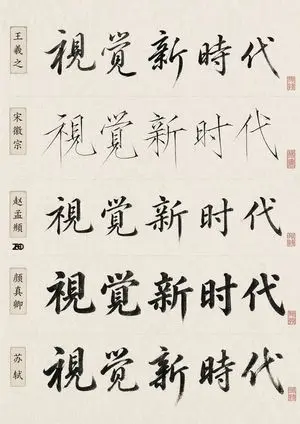 王羲之
視覚新時代
宋徽宗
視覺新时代
赵孟頫
視覺新时代
颜真卿
視覺新时代
苏轼
視覺新時代